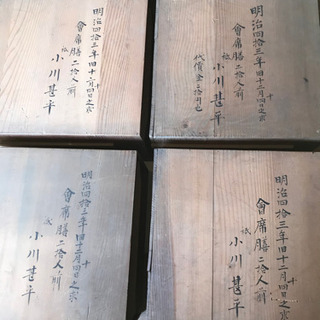 明治四拾三年旧十二月十四日之求
會席膳二拾人前
小川甚平
代價金
明治四拾三年旧十二月十四日之求
會席膳二拾人前
小川甚平
明治四拾三年旧十二月十四日之求
會席膳二拾人前
小川甚平
明治四拾三年旧十二月十四日之求
會席膳二拾人前
小川甚平